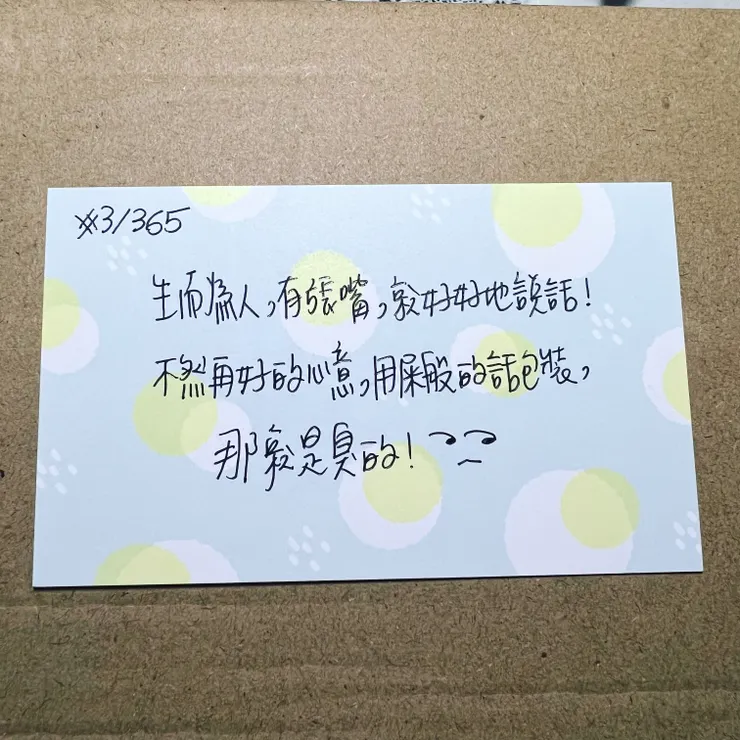 #3/365
生而為人，有張嘴，就好好地說話！
不然再好的心意，用屎般的話包裝，
那就是臭的！